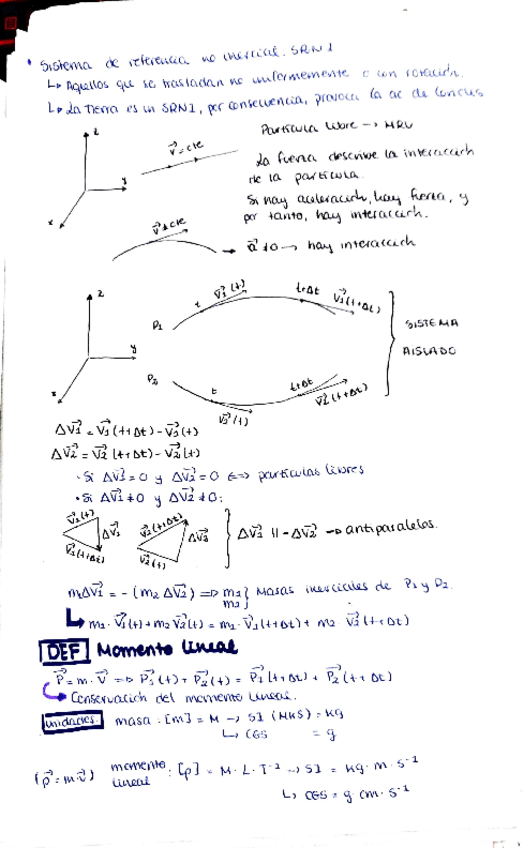 • Sistema de referencia no inercial. SRNI
↳ Aquellos que se trasladan no uniformemente o con rotación.
↳ La Tierra es un SRNI, por consecuencia, provoca la ac de Coriolis
z
y
x
v⃗ = cte
Partícula libre → MRU
La fuerza describe la interacción
de la partícula.
Si hay aceleración, hay fuerza, y
por tanto, hay interacción.
v⃗ ≠ cte
→ a⃗ ≠ 0 → hay interacción
z
y
x
P₁
t
v⃗₁(t)
t+Δt
v⃗₁(t+Δt)
P₂
t
v⃗₂(t)
t+Δt
v⃗₂(t+Δt)
SISTEMA
AISLADO
Δv⃗₁ = v⃗₁(t+Δt) - v⃗₁(t)
Δv⃗₂ = v⃗₂(t+Δt) - v⃗₂(t)
• Si Δv⃗₁ = 0 y Δv⃗₂ = 0 ⇔ partículas libres
• Si Δv⃗₁ ≠ 0 y Δv⃗₂ ≠ 0:
v⃗₁(t) Δv⃗₁ v⃗₁(t+Δt)
v⃗₂(t+Δt) Δv⃗₂ v⃗₂(t)
Δv⃗₁ || -Δv⃗₂ → antiparalelos.
m₁Δv⃗₁ = - (m₂ Δv⃗₂) ⇒ m₁ m₂ } Masas inerciales de P₁ y P₂.
↳ m₁ · v⃗₁(t) + m₂ v⃗₂(t) = m₁ · v⃗₁(t+Δt) + m₂ · v⃗₂(t+Δt)
DEF Momento lineal
P⃗ = m · v⃗ ⇒ P⃗₁(t) + P⃗₂(t) = P⃗₁(t+Δt) + P⃗₂(t+Δt)
↳ Conservación del momento lineal.
Unidades masa : [m] = M → SI (MKS) = kg
↳ CGS = g
(p⃗ = m·v⃗) momento lineal : [p] = M · L · T⁻¹ → SI = kg · m · s⁻¹
↳ CGS = g · cm · s⁻¹